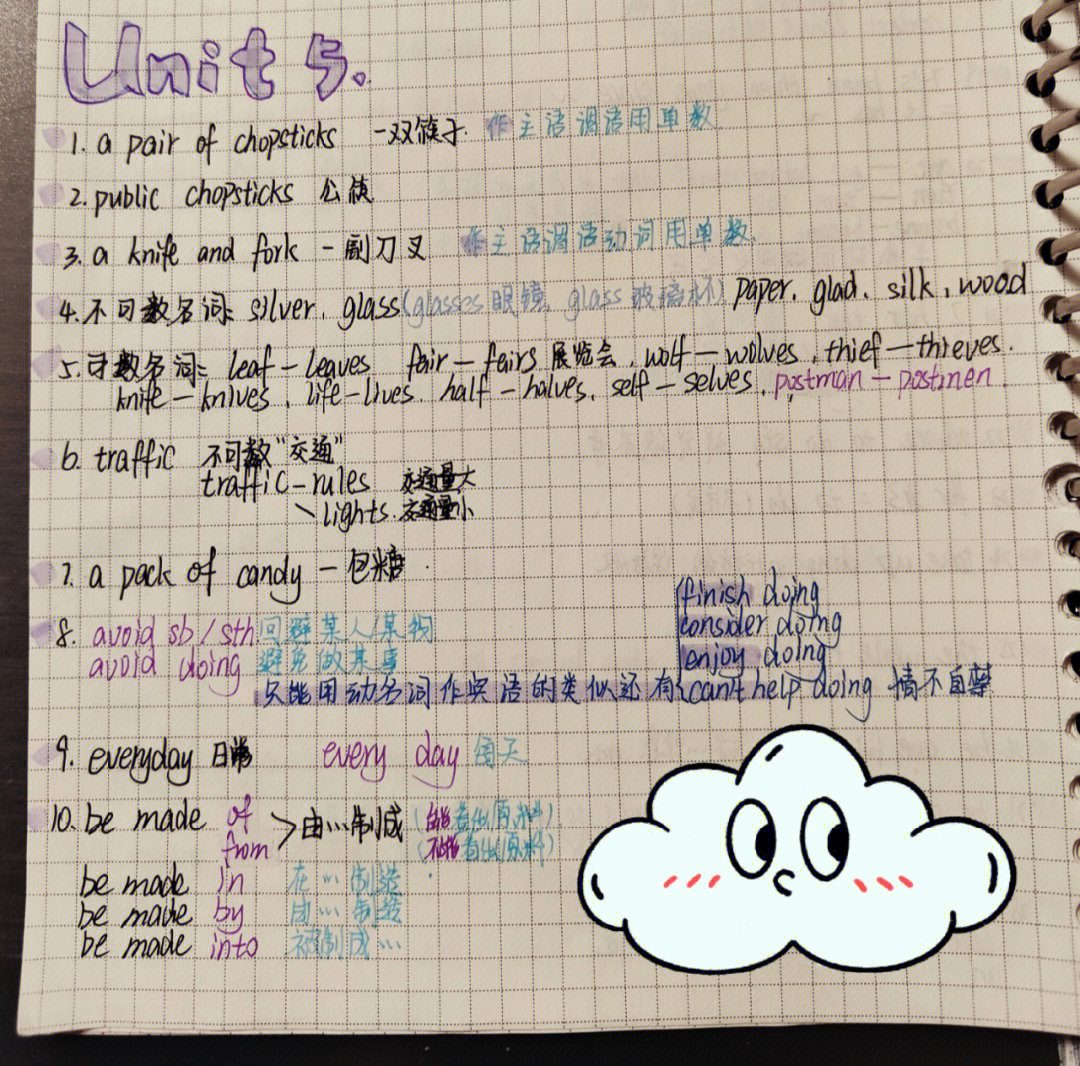 Unit 5.
1. a pair of chopsticks 一双筷子. 作主语谓语用单数
2. public chopsticks 公筷
3. a knife and fork 一副刀叉 作主语谓语动词用单数.
4. 不可数名词: silver, glass (glasses 眼镜, glass 玻璃杯) paper, glad, silk, wood
5. 可数名词: leaf — leaves fair — fairs 展览会, wolf — wolves, thief — thieves.
knife — knives, life — lives, half — halves, self — selves, postman — postmen.
6. traffic 不可数 "交通"
traffic — rules 交通量大
\ lights. 交通量小
7. a pack of candy 一包糖.
8. avoid sb / sth 回避某人/某物
avoid doing 避免做某事
只能用动名词作宾语的类似还有
finish doing
consider doing
enjoy doing
can't help doing 情不自禁
9. everyday 日常 every day 每天
10. be made of
from > 由…制成 (能看出原料)
(不能看出原料)
be made in 在…制造
be made by 由…制造
be made into 被制成…